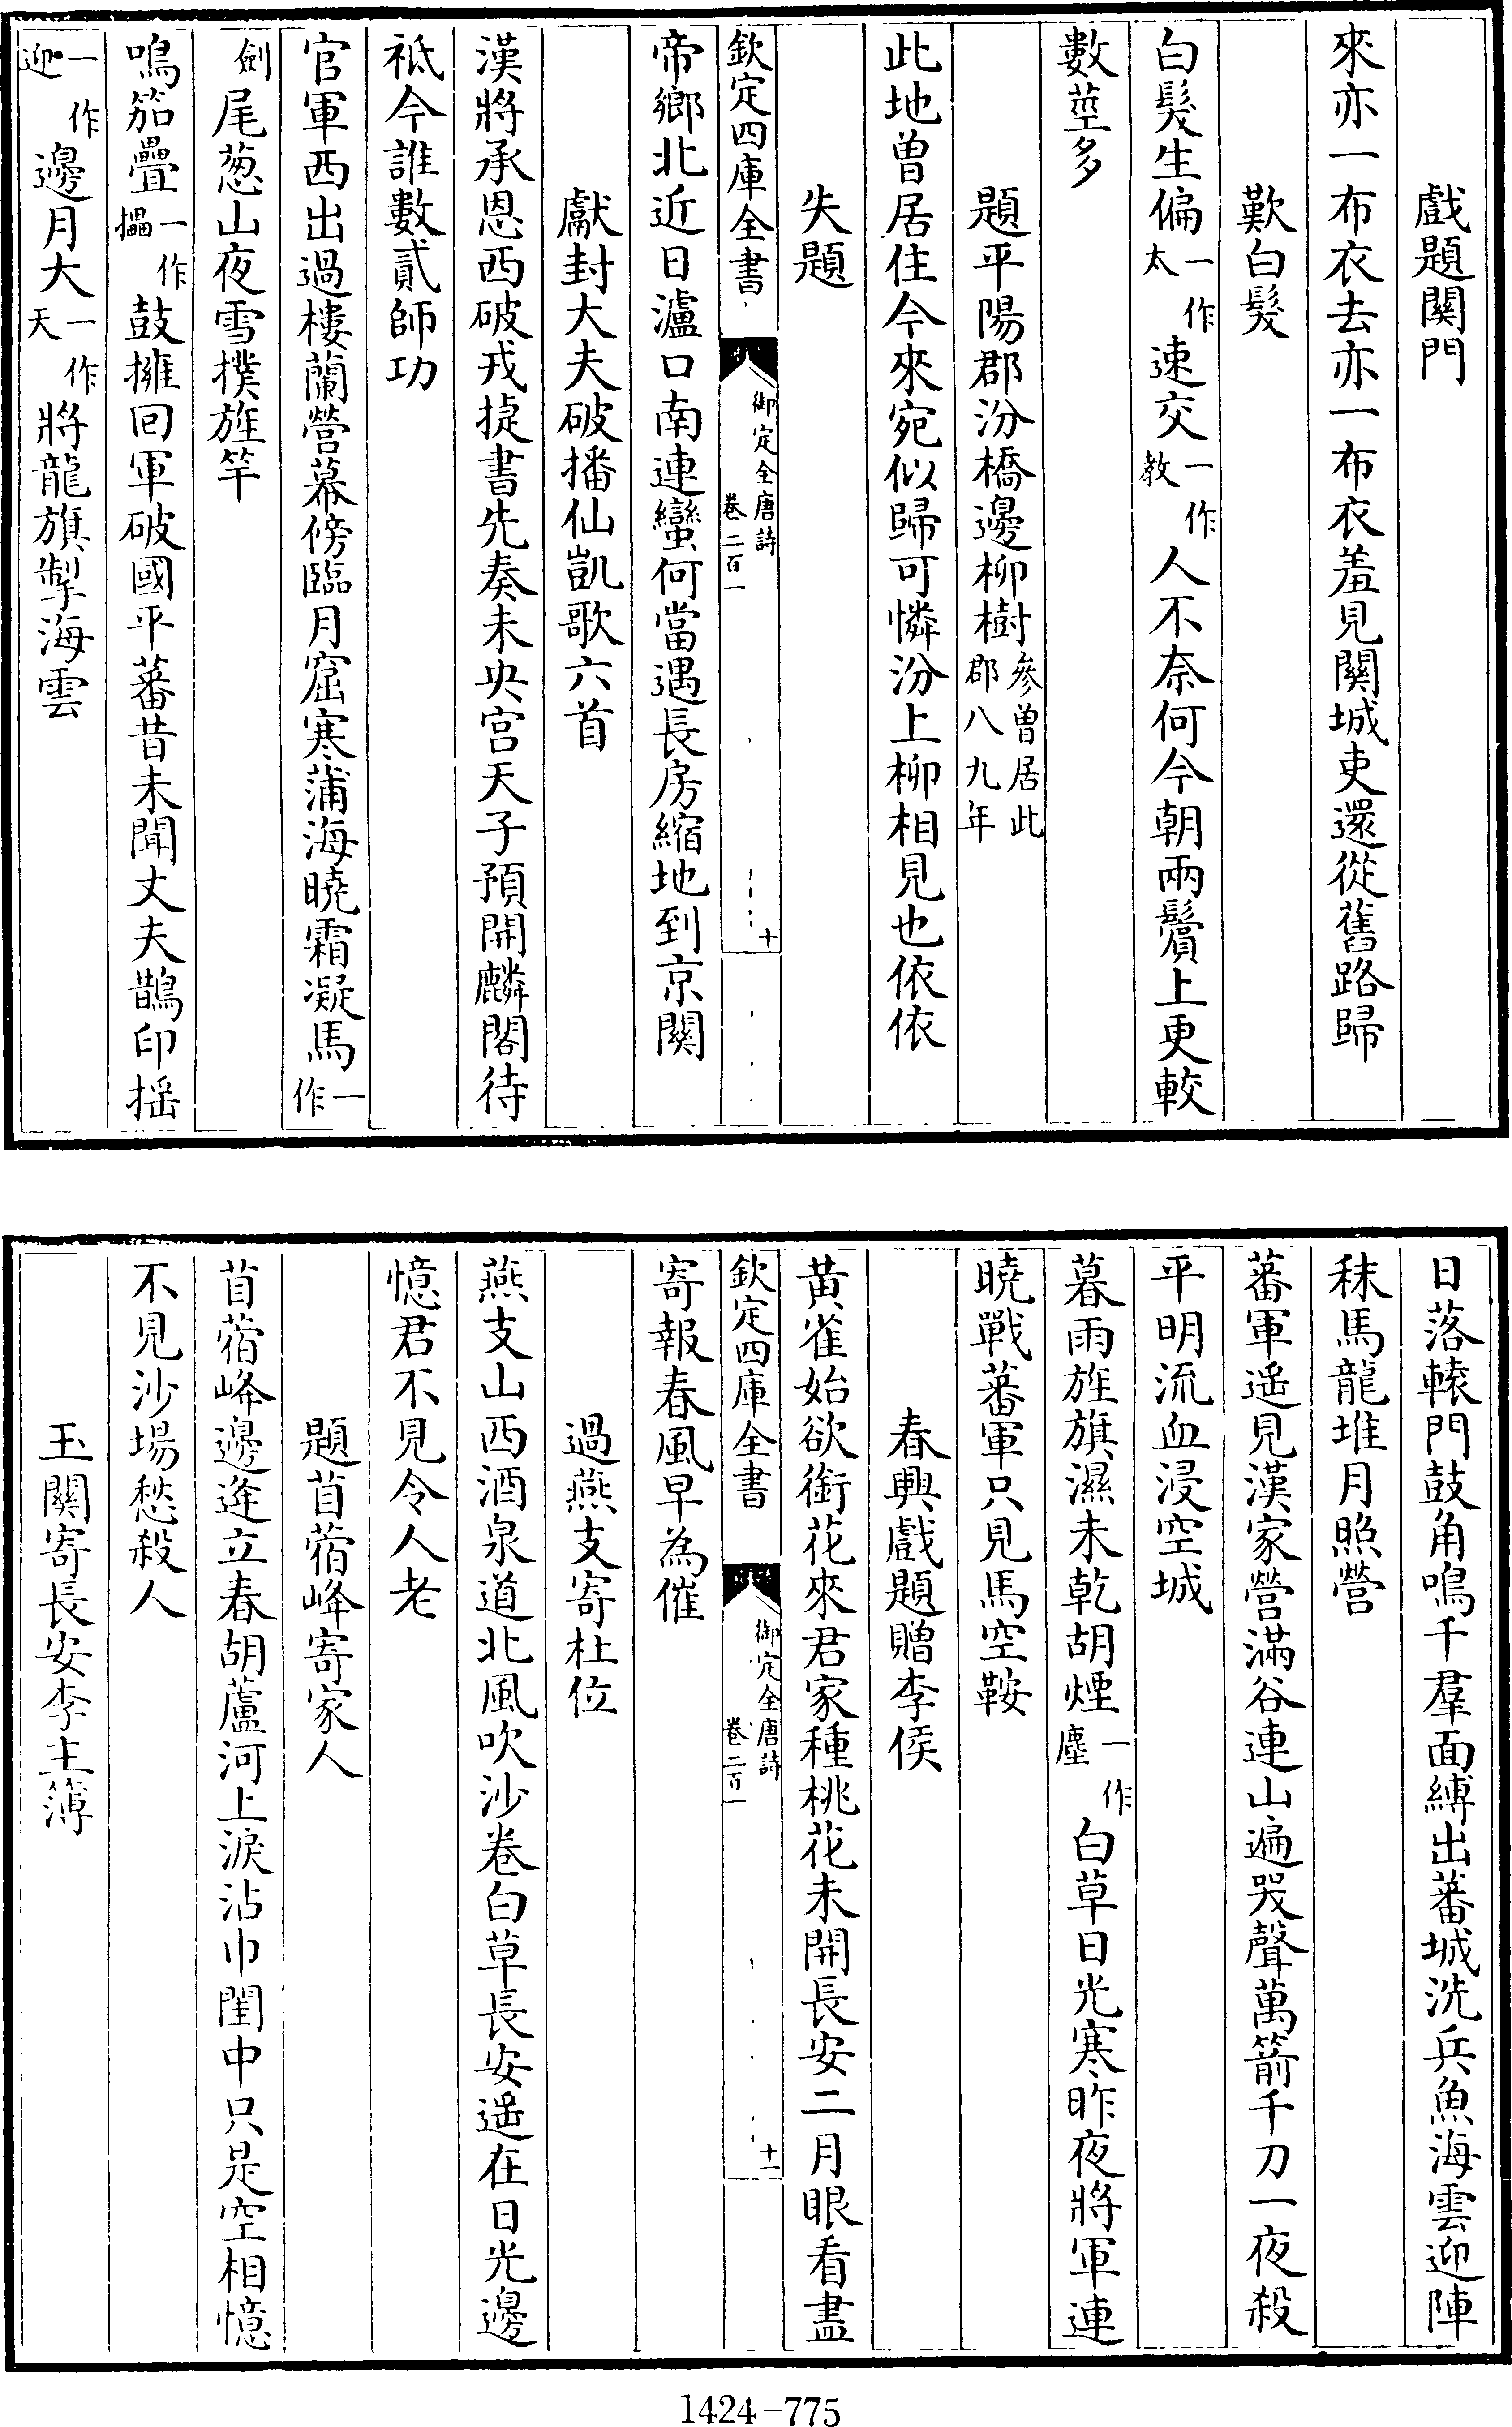 戲題關門
來亦一布衣去亦一布衣羞見關城吏還從舊路歸
歎白髮
白髮生偏一作太速交一作教人不奈何今朝兩鬢上更較
數莖多
題平陽郡汾橋邊柳樹參曾居此郡八九年
此地曾居住今來宛似歸可憐汾上柳相見也依依
失題
欽定四庫全書 御定全唐詩 卷二百一 十
帝鄉北近日瀘口南連蠻何當遇長房縮地到京關
獻封大夫破播仙凱歌六首
漢將承恩西破戎捷書先奏未央宫天子預開麟閣待
祗今誰數貳師功
官軍西出過樓蘭營幕傍臨月窟寒蒲海曉霜凝馬一作
劍尾葱山夜雪撲旌竿
鳴笳疊一作攂鼓擁回軍破國平蕃昔未聞丈夫鵲印揺
一作迎邊月大一作天將龍旗掣海雲
日落轅門鼓角鳴千羣面縛出蕃城洗兵魚海雲迎陣
秣馬龍堆月照營
蕃軍遥見漢家營滿谷連山遍哭聲萬箭千刀一夜殺
平明流血浸空城
暮雨旌旗濕未乾胡煙一作塵白草日光寒昨夜將軍連
曉戰蕃軍只見馬空鞍
春興戲題贈李侯
黄雀始欲銜花來君家種桃花未開長安二月眼看盡
寄報春風早為催
欽定四庫全書 御定全唐詩 卷二百一 十一
過燕支寄杜位
燕支山西酒泉道北風吹沙卷白草長安遥在日光邊
憶君不見令人老
題苜蓿峰寄家人
苜蓿峰邊逢立春胡蘆河上淚沾巾閨中只是空相憶
不見沙場愁殺人
玉關寄長安李主簿
1424-775